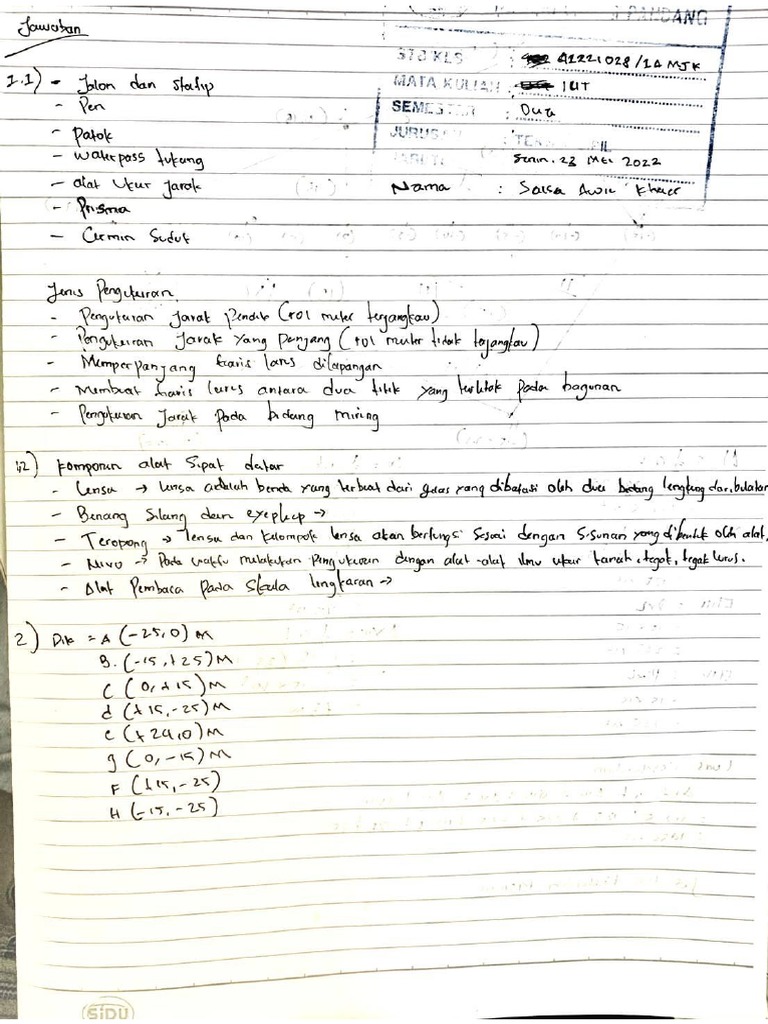 Jawaban
PANDANG
STB/KLS : A1221028/1A MJK
MATA KULIAH : IUT
SEMESTER : Dua
JURUSAN : TEKNIK SIPIL
Senin, 23 Mei 2022
Nama : Salsa Awil
1.1) - Jalon dan statip
- Pen
- Patok
- Waterpass tukang
- alat Ukur Jarak
- Prisma
- Cermin Sudut
Jenis Pengukuran
- Pengukuran Jarak Pendek (rol meter terjangkau)
- Pengukuran Jarak yang panjang (rol meter tidak terjangkau)
- Memperpanjang Garis lurus dilapangan
- Membuat Garis lurus antara dua titik yang terletak pada bagunan
- Pengukuran Jarak Pada bidang miring
1.2) Komponen alat Sipat datar
- Lensa → lensa adalah benda yang terbuat dari gelas yang dibatasi oleh dua bidang lengkung dari bulatan
- Benang Silang dan →
- Teropong → lensa dan Kelompok lensa akan berfungsi Sesuai dengan Susunan yang dibentuk oleh alat.
- Nivo → Pada waktu melakukan Pengukuran dengan alat-alat ilmu ukur tanah, tegak, tegak lurus.
- Alat Pembaca Pada Skala lingkaran →
2) Dik = A (-25,0) M
B. (-15,+25) M
C (0,+15) M
d (+15,-25) M
e (+24,0) M
g (0,-15) M
F (+15,-25)
H (-15,-25)
SiDU